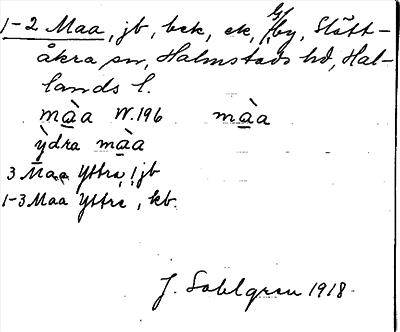 1-2 Maa, jb, bck, ek, by, Slätt-
åkra sn, Halmstads hd, Hal-
lands l.
màa W.196 màa
ỳdra màa
3 Maa Yttra, jb
1-3 Maa Yttre, kb.
J. Sahlgren 1918